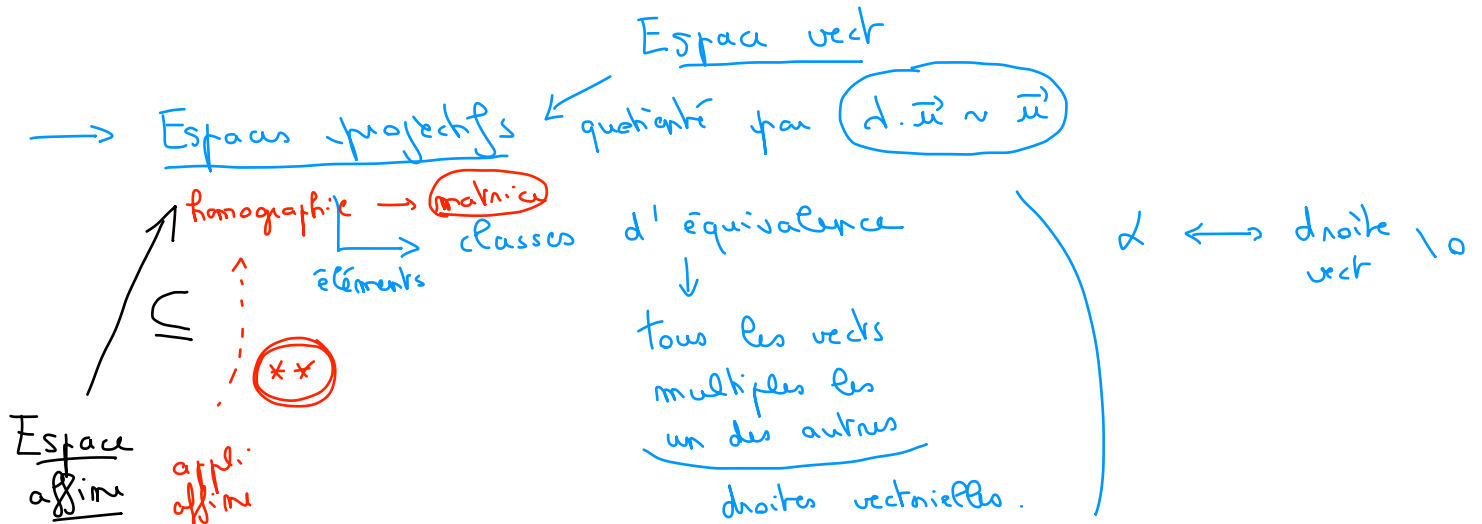 Espace vect
→ Espaces projectifs ← quotienté par λ.u⃗ ~ u⃗
homographie → matrice
éléments → classes d'équivalence
↓
tous les vects
multiples les
un des autres
droites vectorielles.
α ↔ droite vect \ 0
⊆
**
Espace affine
appli. affine